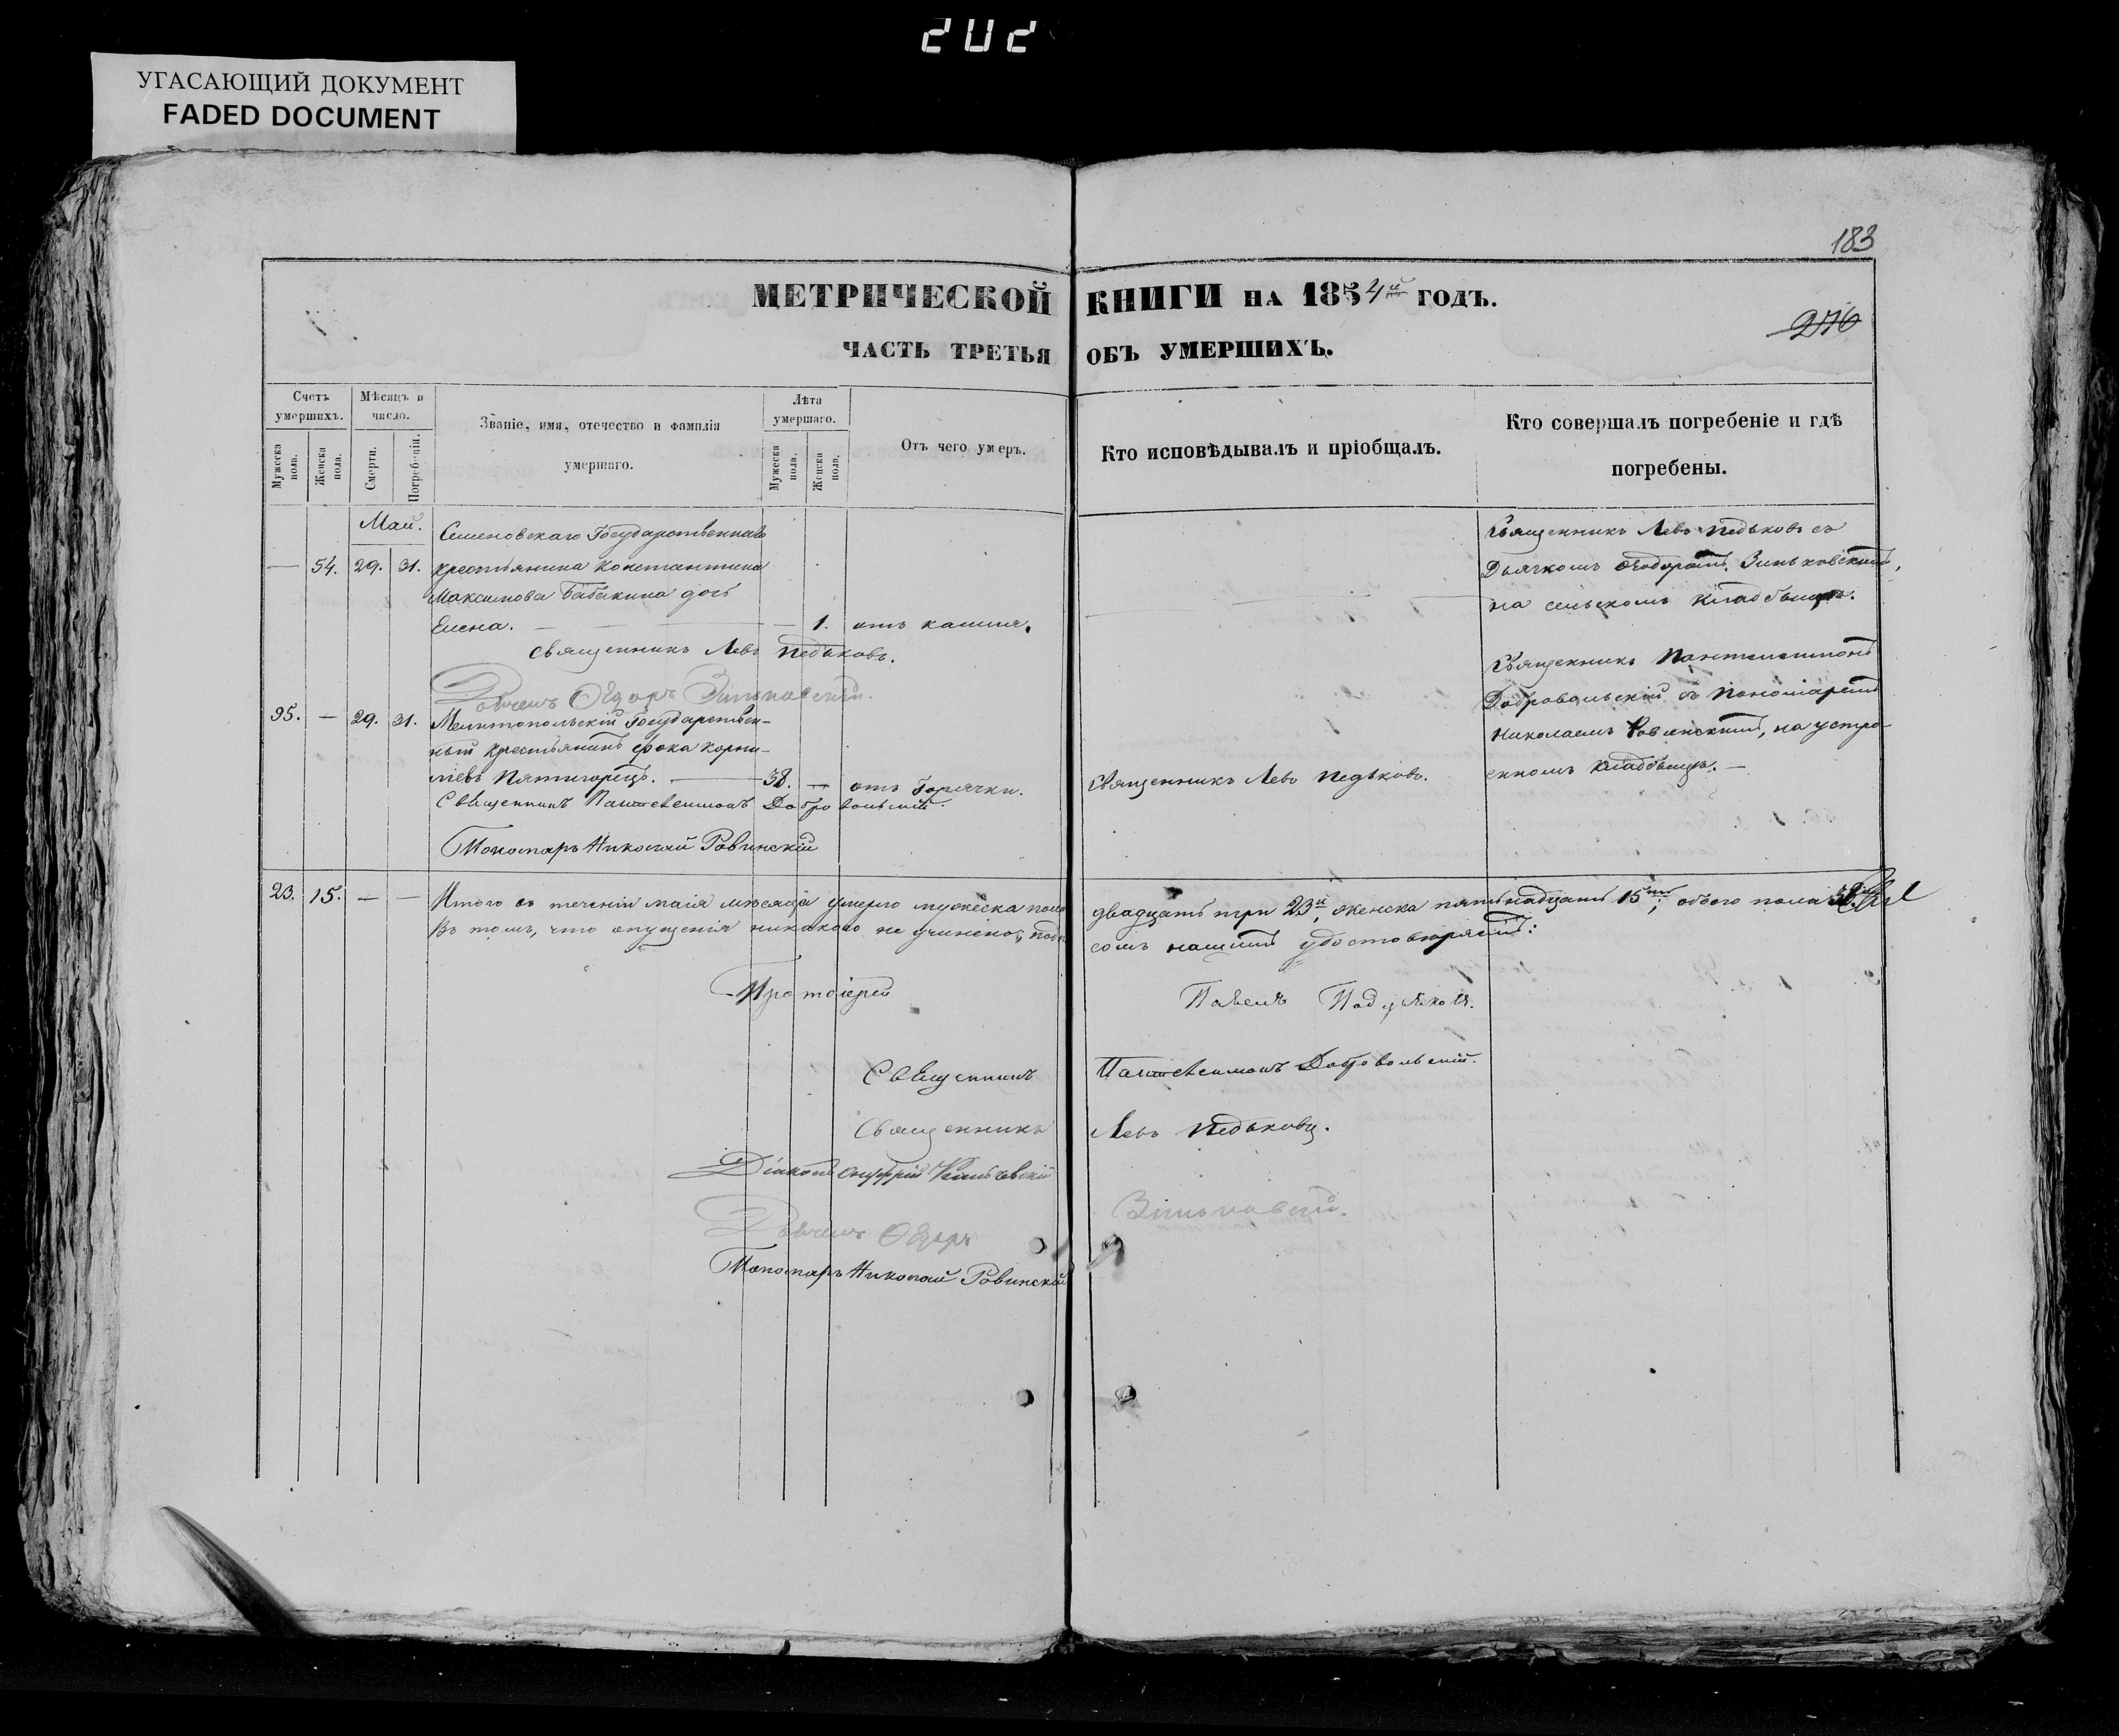 202
УГАСАЮЩИЙ ДОКУМЕНТ
FADED DOCUMENT
183
МЕТРИЧЕСКОЙ КНИГИ НА 1854й ГОДЪ.
276
ЧАСТЬ ТРЕТЬЯ ОБЪ УМЕРШИХЪ.
Счетъ умершихъ.
Мужеска пола.
Женска пола.
Мѣсяцъ и число.
Смерти.
Погребенія.
Званіе, имя, отечество и фамилія умершаго.
Лѣта умершаго.
Мужеска пола.
Женска пола.
Отъ чего умеръ.
Кто исповѣдывалъ и пріобщалъ.
Кто совершалъ погребеніе и гдѣ погребены.
Май.
— 54. 29. 31.
Семеновскаго Государственнаго
крестьянина Константина
Максимова Бабакина дочь
Елена. — — 1. отъ кашля.
Священникъ Левъ Педьковъ съ
Дьячкомъ Ѳеодоромъ Зиньковскимъ,
на сельскомъ кладбищѣ.
Священникъ Левъ Педьковъ.
Дьячекъ Ѳедоръ Зиньковскій.
95. — 29. 31.
Мелитопольскій Государствен-
ный крестьянинъ Фока Корни-
ліевъ Пятигорецъ. — 58. — отъ Горячки.
Священникъ Левъ Педьковъ.
Священникъ Пантелеимонъ
Добровольскій съ Пономаремъ
Николаемъ Ровинскимъ, на устро
енномъ кладбищѣ. —
Священникъ Пантелеимонъ Добровольскій.
Пономарь Николай Ровинскій
23. 15. — —
Итого въ теченіи маія мѣсяца умерло мужеска пола двадцать три 23й, женска пятьнадцать 15ть, обоего пола 38
Въ томъ, что опущенія никакого не учинено, подпи сомъ нашимъ удостовѣряемъ:
Протоіерей Павелъ
Священникъ Пантелеимонъ Добровольскій.
Священникъ Левъ Педьковъ.
Діаконъ Онуфрій
Дьячекъ Ѳедоръ Зиньковскій.
Пономарь Николай Ровинскій